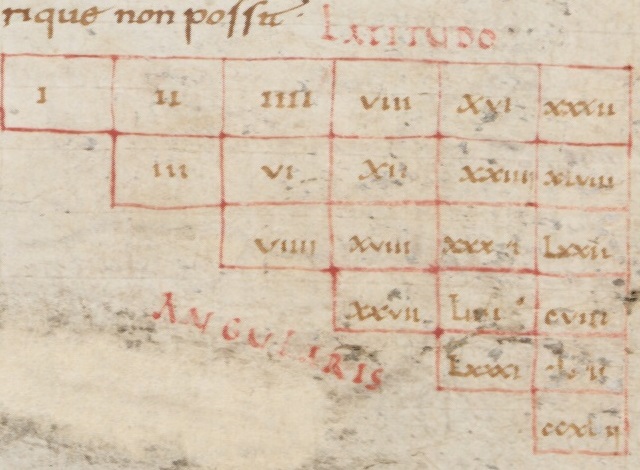 rique non possu͞t·
LATITUDO
I II IIII VIII XVI XXXII
III VI XII XXIIII XLVIII
VIIII XVIII XXXVI LXXII
XXVII LIIII CVIII
ANGULARIS
LXXXI